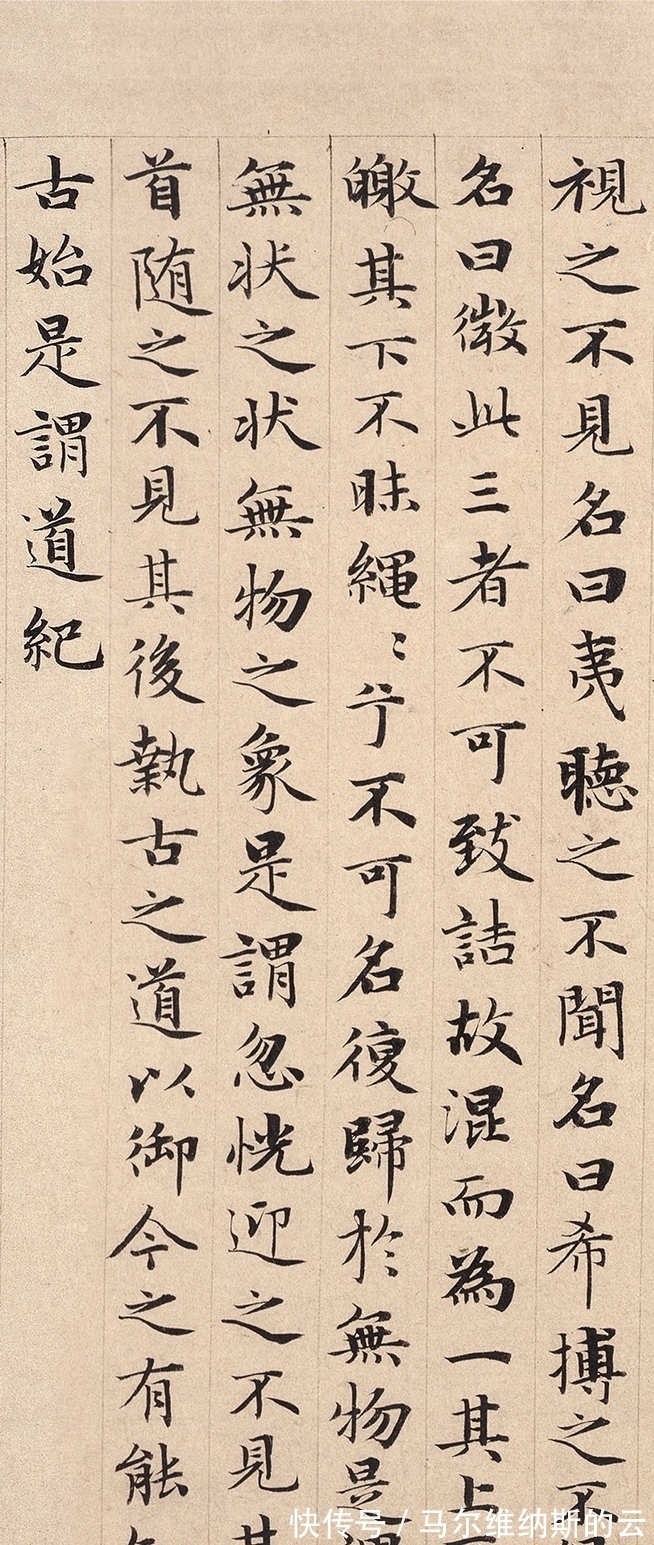 視之不見名曰夷聴之不聞名曰希搏之不
名曰微此三者不可致詰故混而為一其上
皦其下不昧繩〻兮不可名復歸於無物是謂
無状之状無物之象是謂忽恍迎之不見其
首随之不見其後執古之道以御今之有能
古始是謂道紀
快传号 / 马尔维纳斯的云